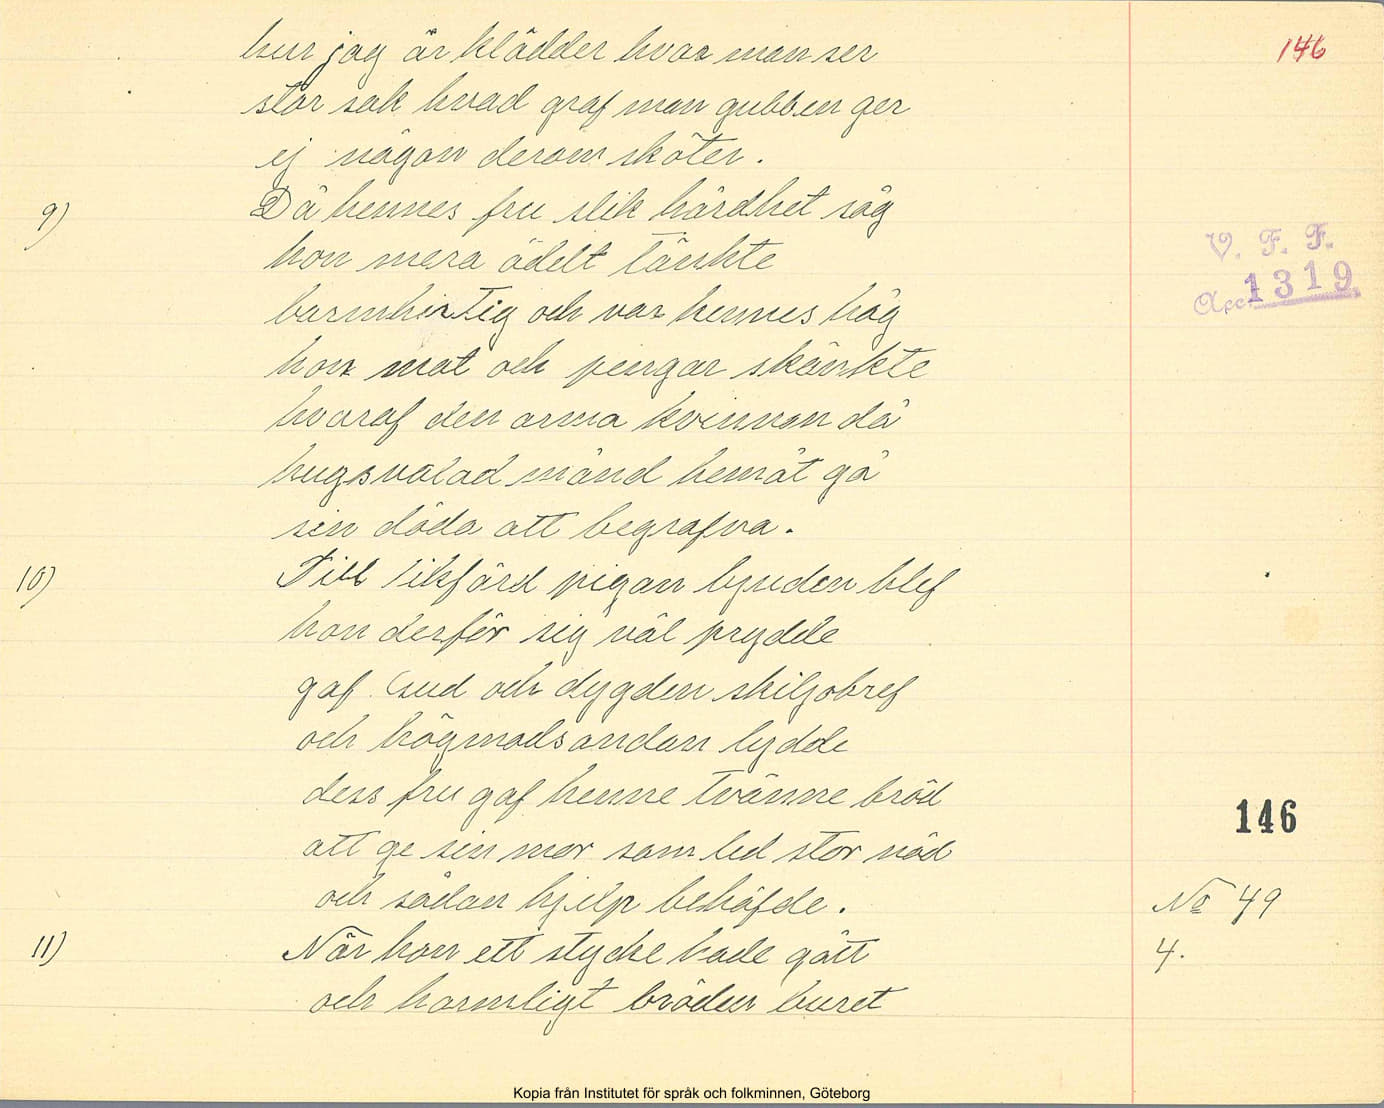 hur jag är klädder hvar man ser
stor sak hvad graf man gubben ger
ej någon derom sköter.
9) Då hennes fru slik hårdhet såg
hon mera ädelt tänkte
barmhertig och var hennes håg
hon mat och pengar skänkte
hvaraf den arma kvinnan då
hugsvalad månd hemåt gå
sin döda att begrafva.
10) Till likfärd pigan bjuden blef
hon derför sig väl prydde
gaf Gud och dygden skiljobref
och högmodsandan lydde
dess fru gaf henne tvänne bröd
att ge sin mor som led stor nöd
och sådan hjelp behöfde.
11) När hon ett stycke hade gått
och harmligt bröden buret
146
V. F. F.
Acc. 1319
146
No 49
4.
Kopia från Institutet för språk och folkminnen, Göteborg